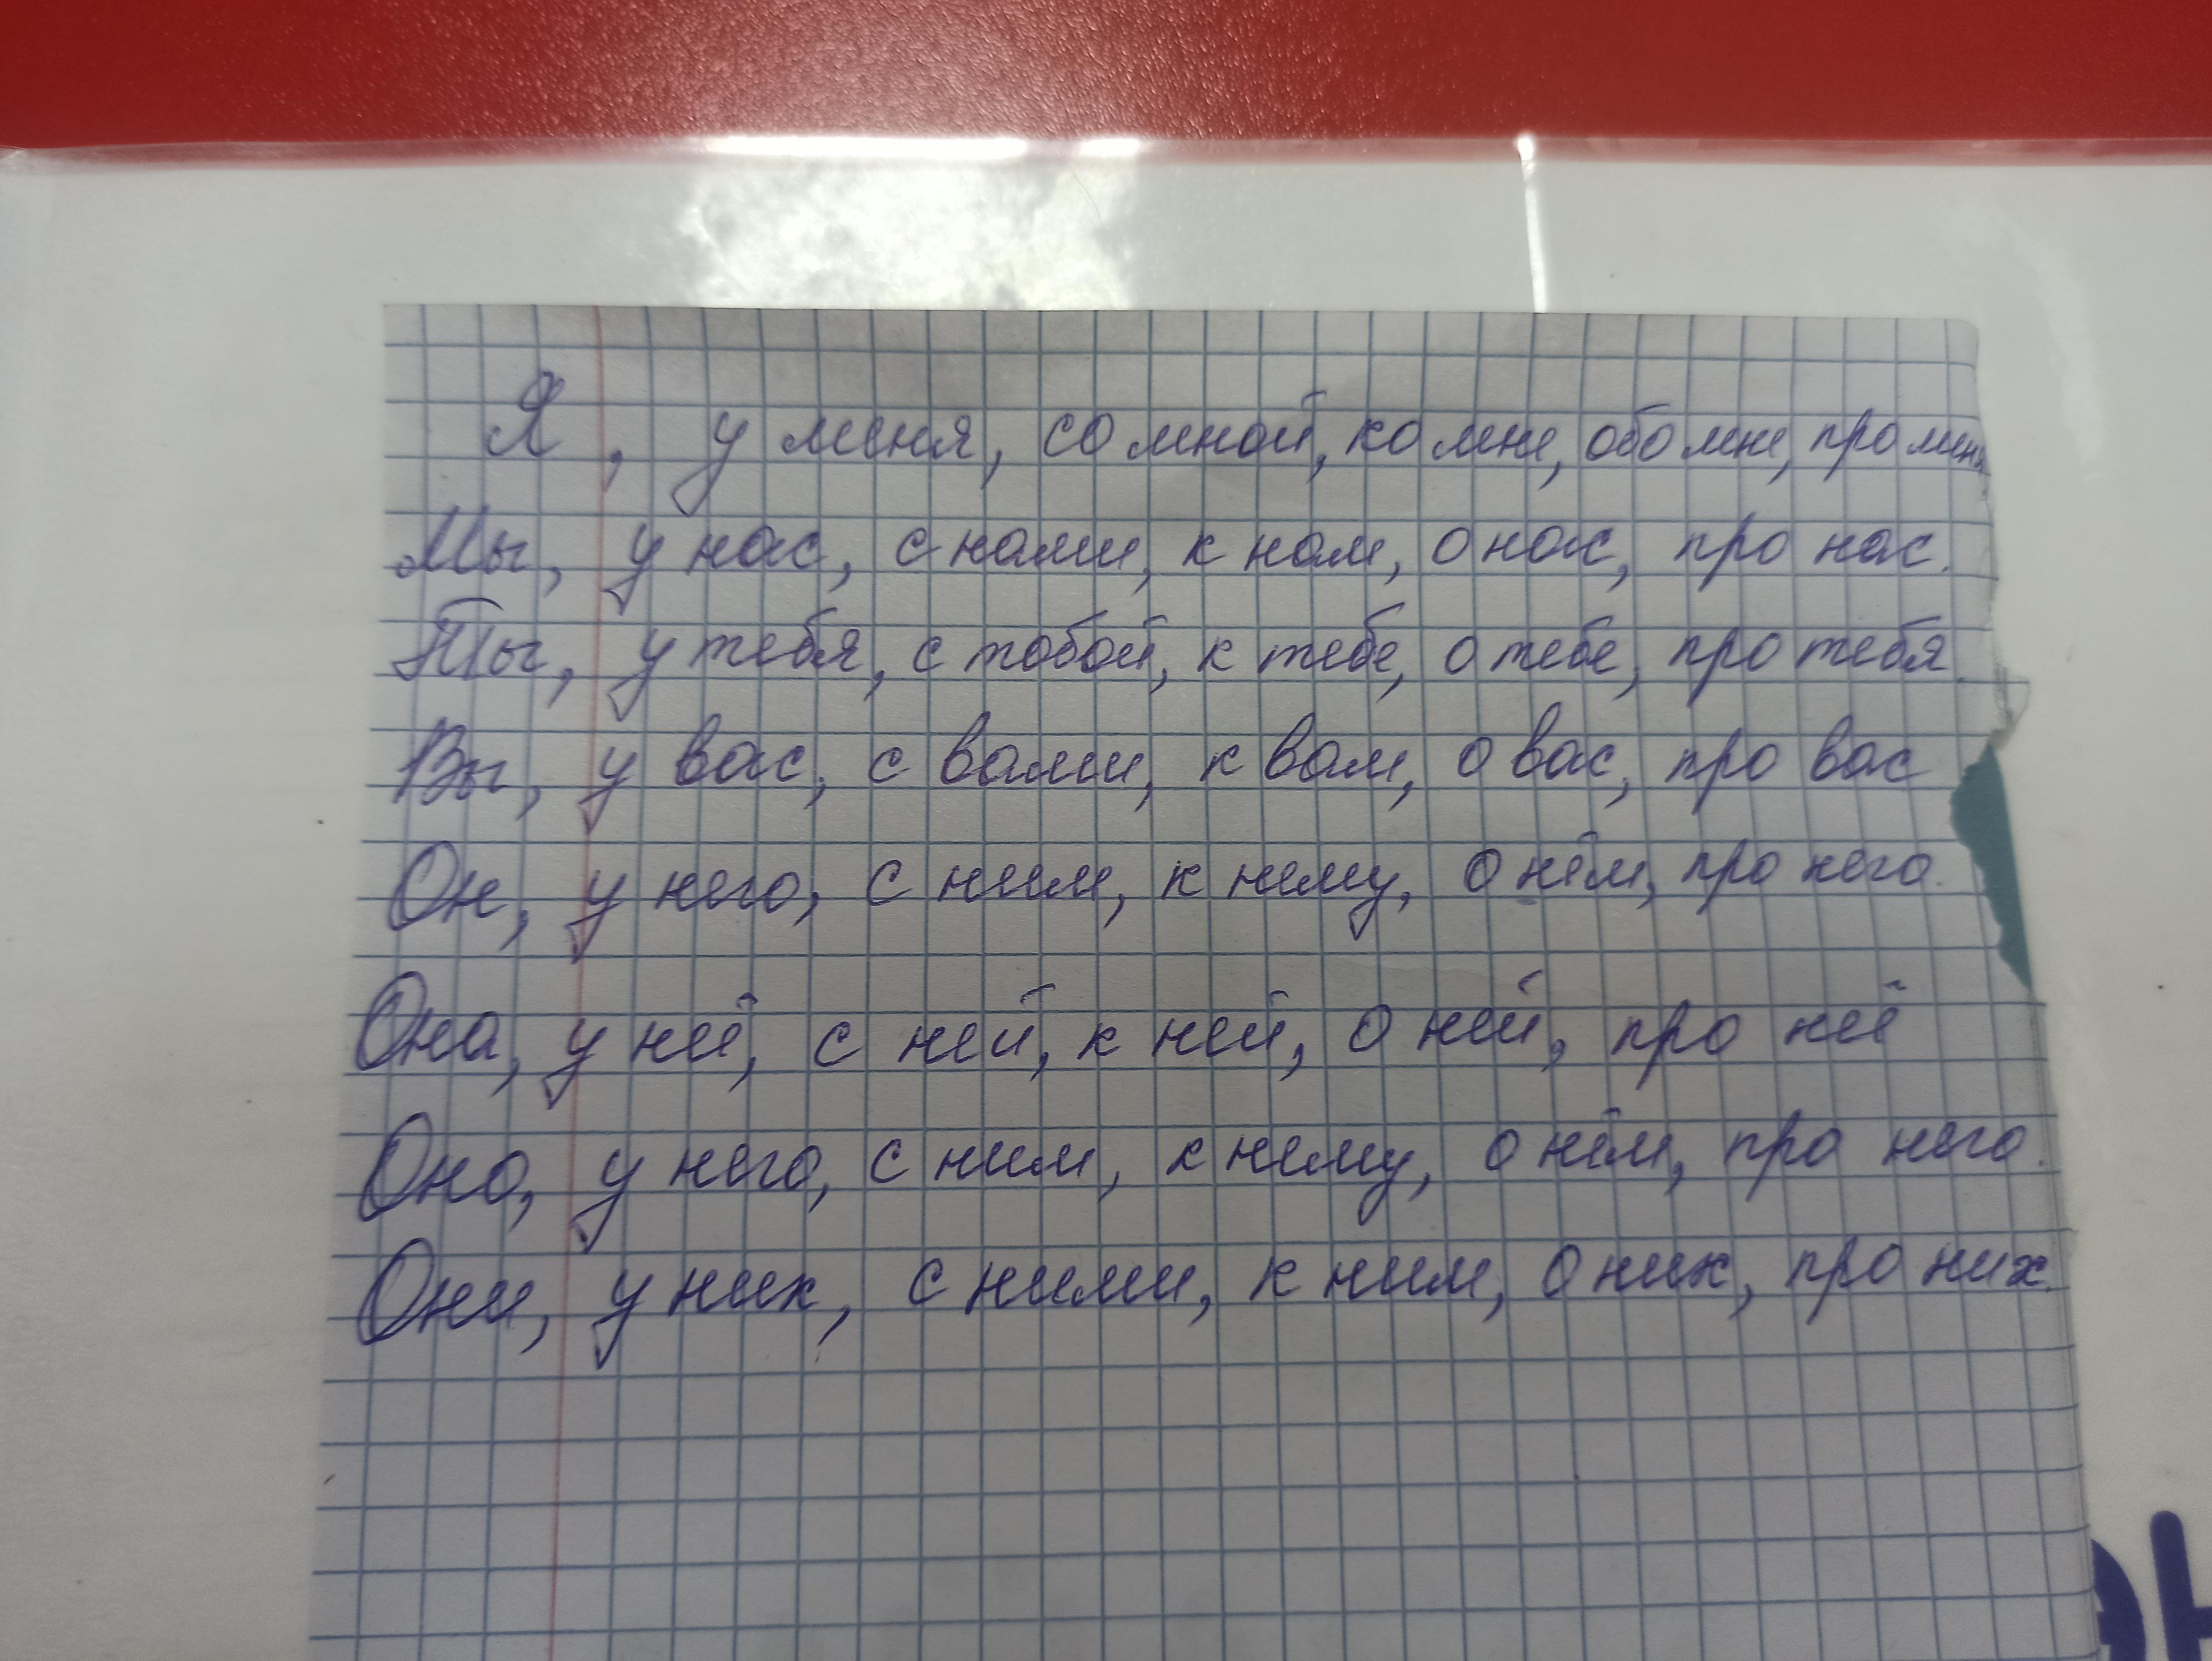 Я, у меня, со мной, ко мне, обо мне, про меня
Мы, у нас, с нами, к нам, о нас, про нас.
Ты, у тебя, с тобой, к тебе, о тебе, про тебя.
Вы, у вас, с вами, к вам, о вас, про вас
Он, у него, с ним, к нему, о нём, про него.
Она, у неё, с ней, к ней, о ней, про неё
Оно, у него, с ним, к нему, о нём, про него.
Они, у них, с ними, к ним, о них, про них.